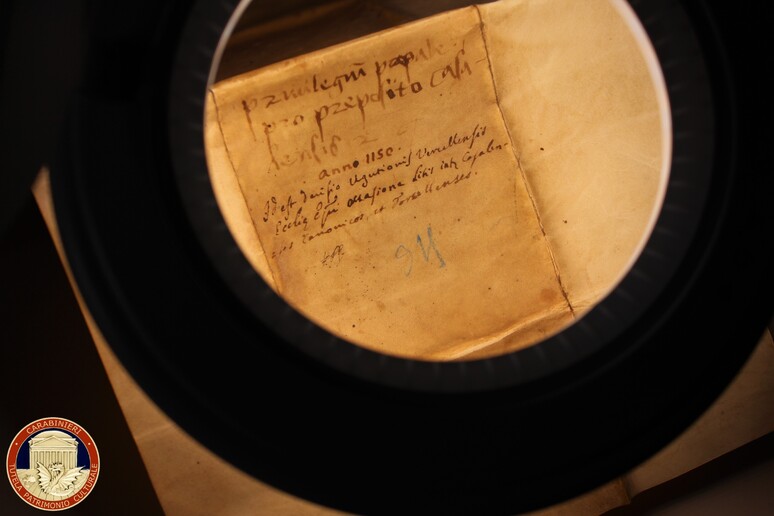 privilegiū papale
pro preposito Casa-
lensis
anno 1150.
Id est Decisio Ugutionis Vercellensis
Ecclie Epi occasione litis int Casalen-
ses Canonicos, et
CARABINIERI
TUTELA PATRIMONIO CULTURALE